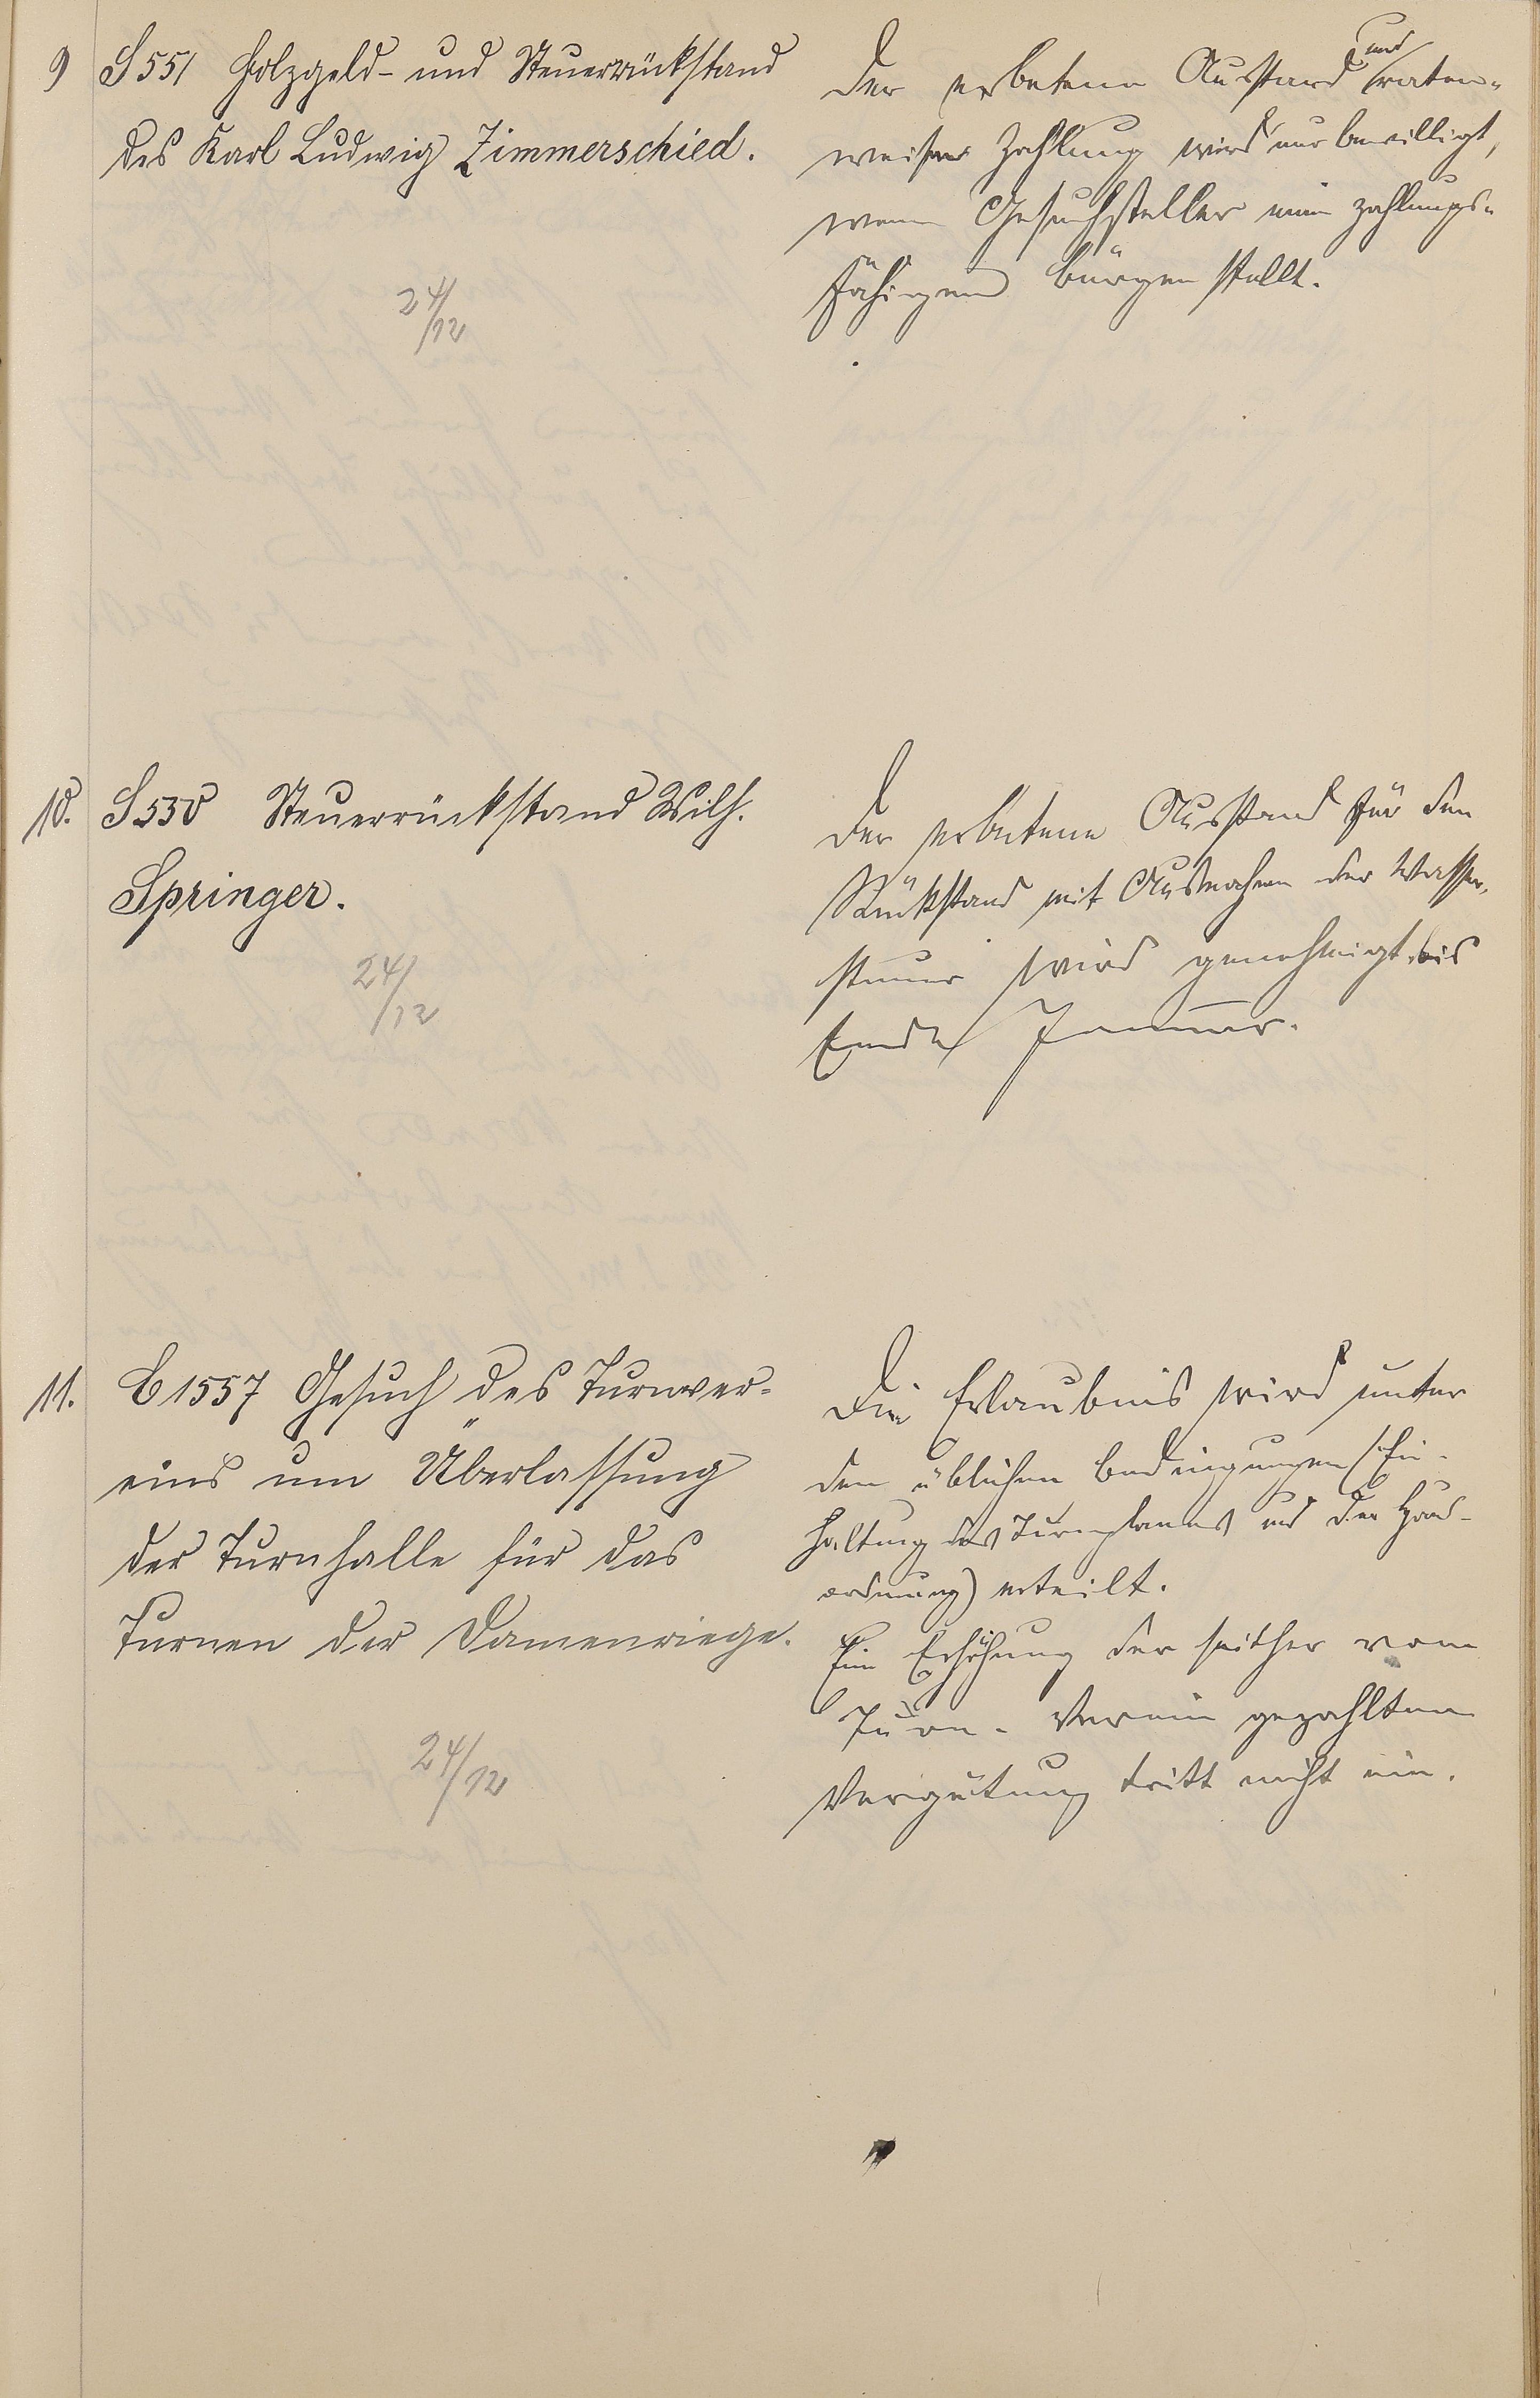 9 S 551 Holzgeld- und Steuerrückstand
des Karl Ludwig Zimmerschied.
24/12
Der erbetene Ausstand und raten-
weiser Zahlung wird nur bewilligt,
wenn Gesuchsteller einen zahlungs-
fähigen Bürgen stellt.
10. S 550 Steuerrückstand Wilh.
Springer.
24/12
Der erbetene Ausstand für den
Rückstand mit Ausnahme der Wasser-
steuer wird genehmigt bis
Ende Januar.
11. C 1557 Gesuch des Turnver-
eins um Überlassung
der Turnhalle für das
Turnen der Damenriege.
24/12
Die Erlaubnis wird unter
den üblichen Bedingungen (Ein-
haltung des Turnplanes und der Haus-
ordnung) erteilt.
Eine Erhöhung der seither vom
Turn-Verein gezahlten
Vergütung tritt nicht ein.